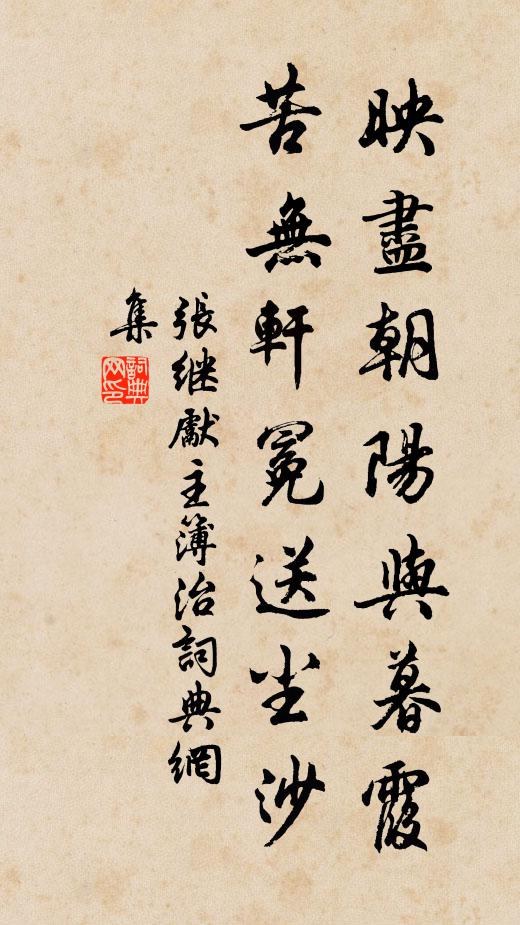 映盡朝陽與暮霞
苦無軒冕送尘沙
張继獻主簿治詞典網
集
詞典网印